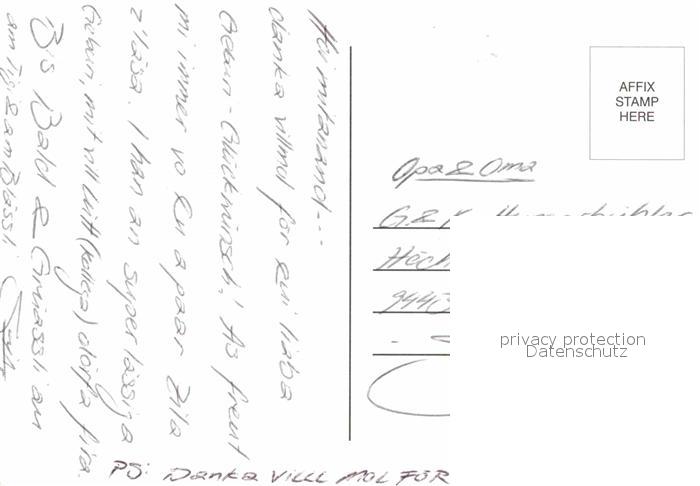 Hoi mitanand...
danka villmol för eui liaba
Geburi-Glückwünsch! As freut
mi immer vo Eu a paar Zila
z'läsa. I han an super lässiga
Geburi, mit vil Lüt (kollega) dörfa fira.
Bis Bald & Grüassli an
am Tigi & am Blässi
PS: Danka VILL MOL FÖR
AFFIX
STAMP
HERE
Opa & Oma
G. &
944
privacy protection
Datenschutz